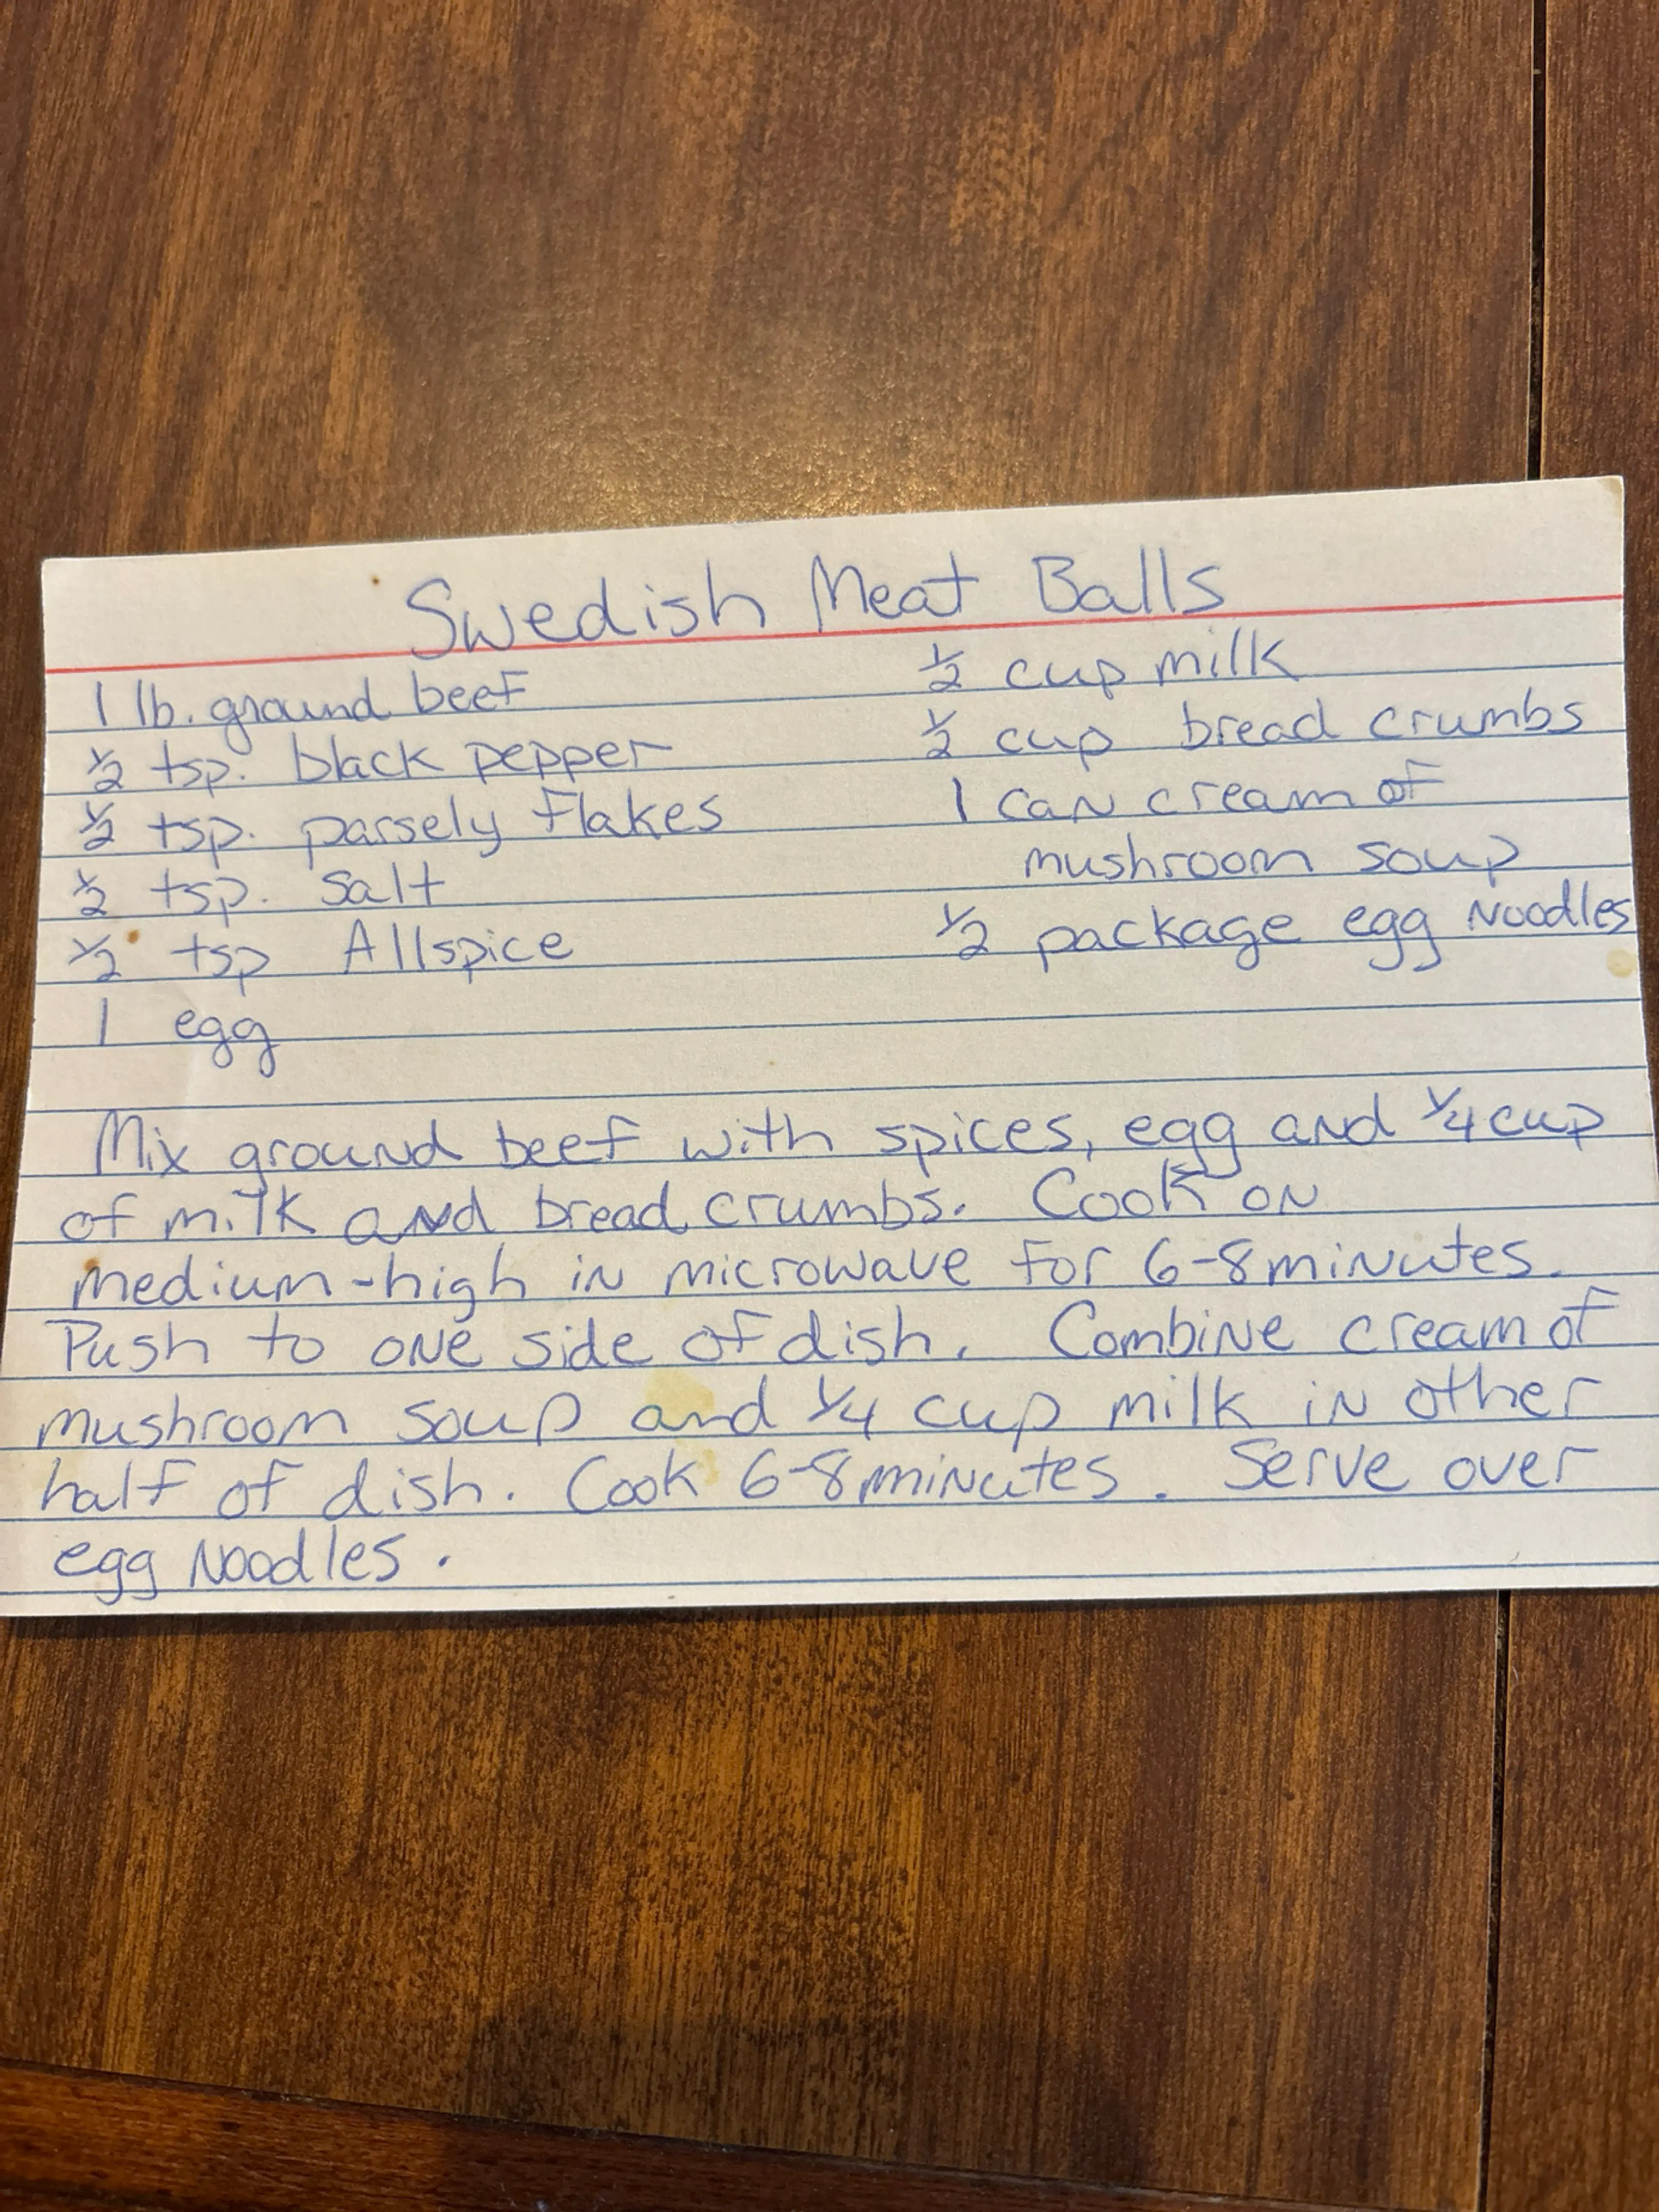 Swedish Meat Balls
1 lb. ground beef
½ tsp. black pepper
½ tsp. parsely flakes
½ tsp. salt
½ tsp Allspice
1 egg
½ cup milk
½ cup bread crumbs
1 can cream of
mushroom soup
½ package egg noodles
Mix ground beef with spices, egg and ¼ cup
of milk and bread crumbs. Cook on
medium-high in microwave for 6-8 minutes.
Push to one side of dish. Combine cream of
mushroom soup and ¼ cup milk in other
half of dish. Cook 6-8 minutes. Serve over
egg noodles.